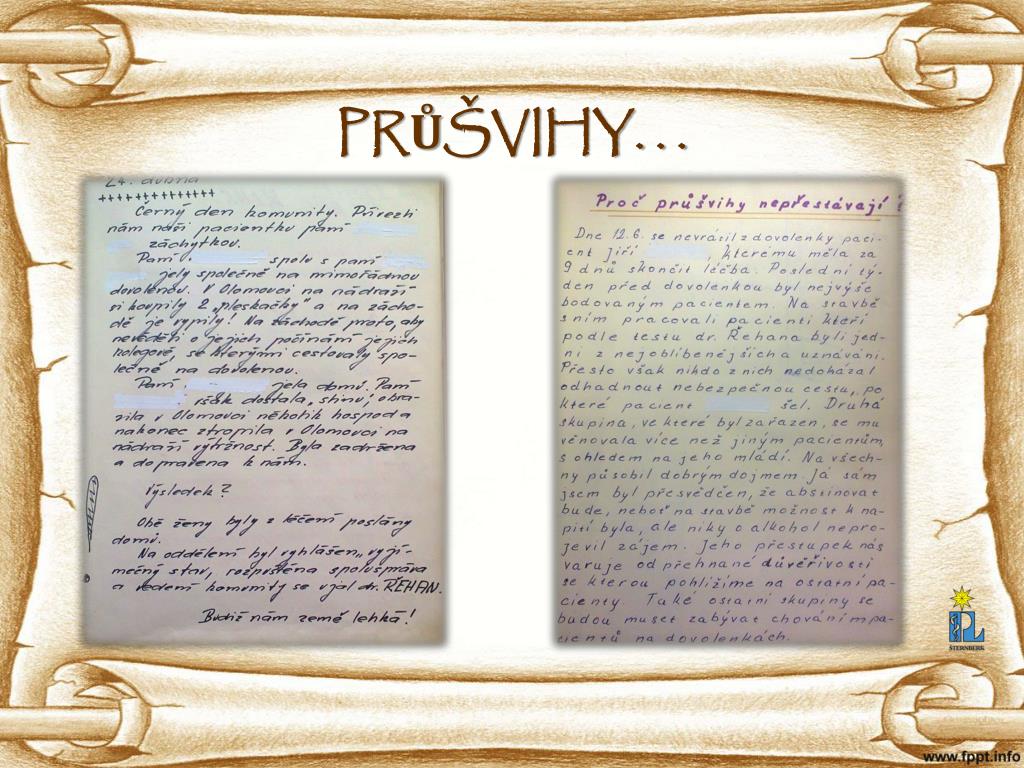 PRŮŠVIHY...
24. dubna
++++++++++++++
Černý den komunity. Přivezli
nám naši pacientku paní
záchytkou.
Paní spolu s paní
jely společně na mimořádnou
dovolenou. V Olomouci na nádraží
si koupily 2 „pleskačky" a na zácho-
dě je vypily! Na záchodě proto, aby
nevěděli o jejich počínání jejich
kolegové, se kterými cestovaly spo-
lečně na dovolenou.
Paní jela domů. Paní
však dostala „šňnu", obra-
zila v Olomouci několik hospod a
nakonec ztropila v Olomouci na
nádraží výtržnost. Byla zadržena
a dopravena k nám.
Výsledek?
Obě ženy byly z léčení poslány
domů.
Na oddělení byl vyhlášen „výji-
mečný stav, rozpuštěna spolupráva
a vedení komunity se ujal dr. ŘEHAN.
Budiž nám země lehká!
Proč průšvihy nepřestávají
Dne 12.6. se nevrátil z dovolenky paci-
ent Jiří , kterému měla za
9 dnů skončit léčba. Poslední tý-
den před dovolenkou byl nejvýše
bodovaným pacientem. Na stavbě
s ním pracovali pacienti kteří
podle testu dr. Řehana byli jed-
ni z nejoblíbenějších a uznáváni.
Přesto však nikdo z nich nedokázal
odhadnout nebezpečnou cestu, po
které pacient šel. Druhá
skupina, ve které byl zařazen, se mu
věnovala více než jiným pacientům,
s ohledem na jeho mládí. Na všech-
ny působil dobrým dojmem. Já sám
jsem byl přesvědčen, že abstinovat
bude, neboť na stavbě možnost k na-
pití byla, ale niky o alkohol nepro-
jevil zájem. Jeho přestupek nás
varuje od přehnané důvěřivosti
se kterou pohlížíme na ostatní pa-
cienty. Také ostatní skupiny se
budou muset zabývat chováním pa-
cientů na dovolenkách.
PL
ŠTERNBERK
www.fppt.info